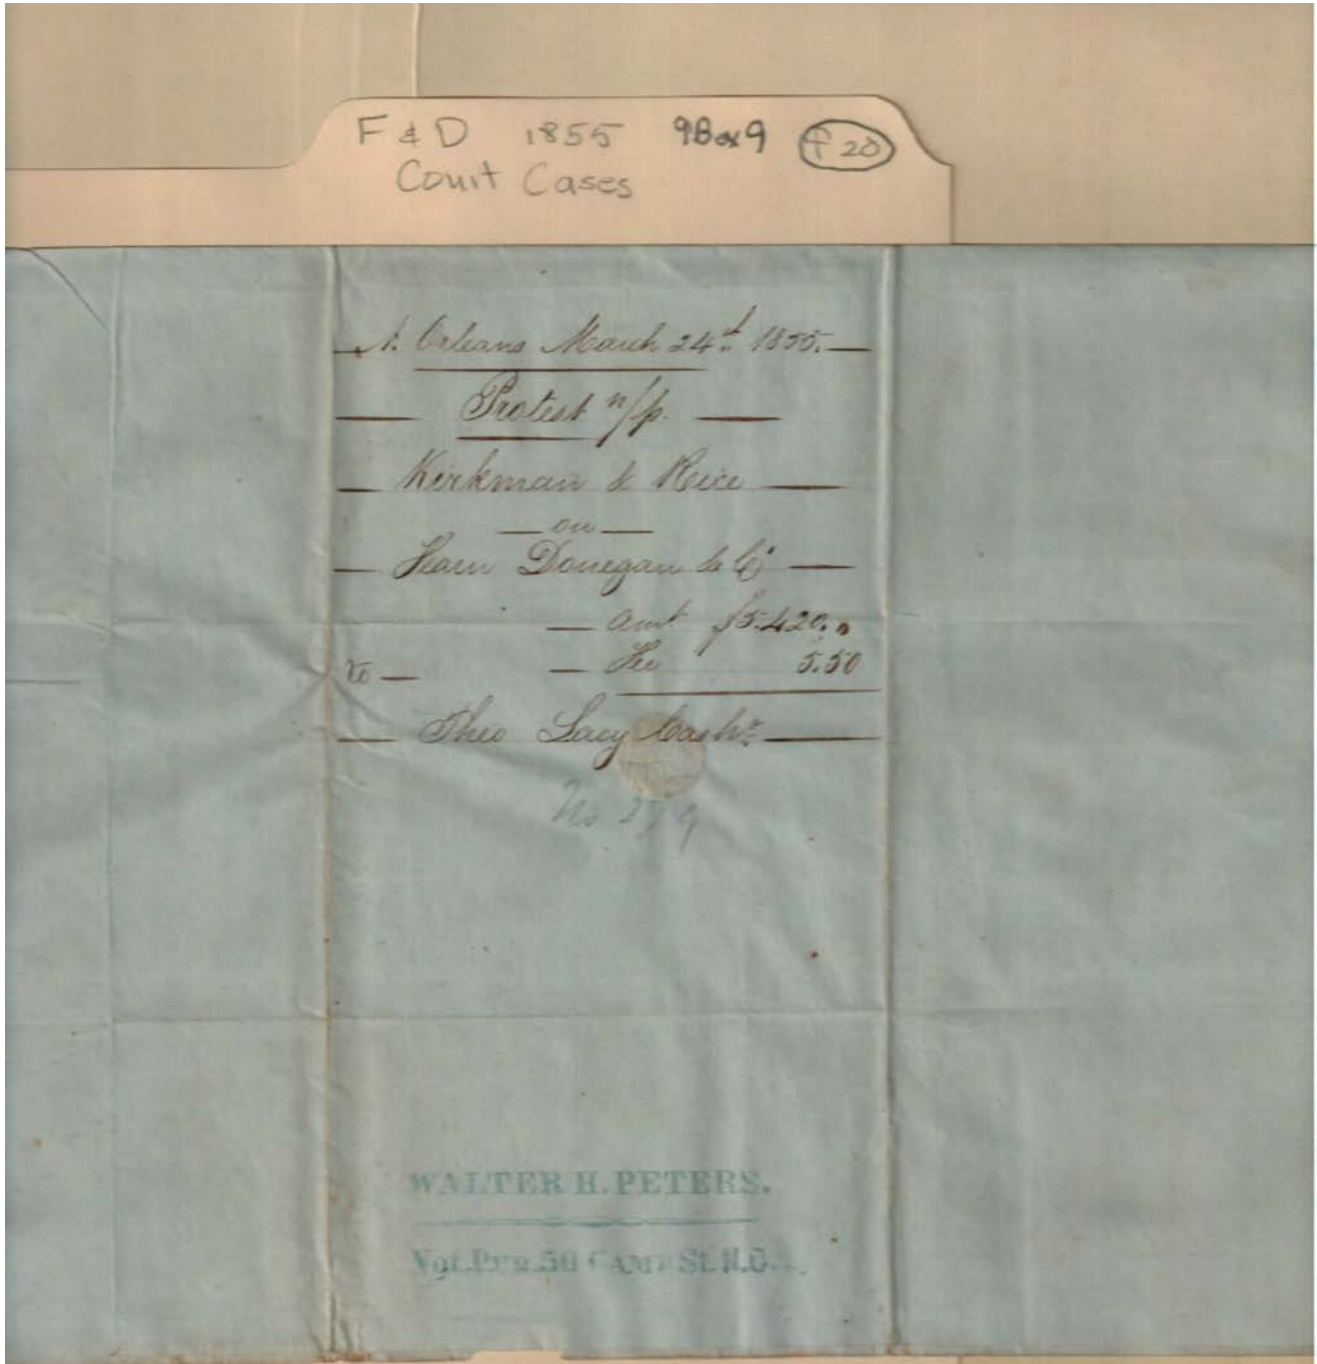 F & D 1855 9Box9 f 20
Court Cases
N. Orleans March 24th 1855.
Protest n/p.
Kirkman & Rice
on
Fearn Donegan & Co
amt $5.420.
to Fee 5.50
Theo Lacy Cashr
No
WALTER H. PETERS.
Not. Pub. 50 CAMP St. N.O.